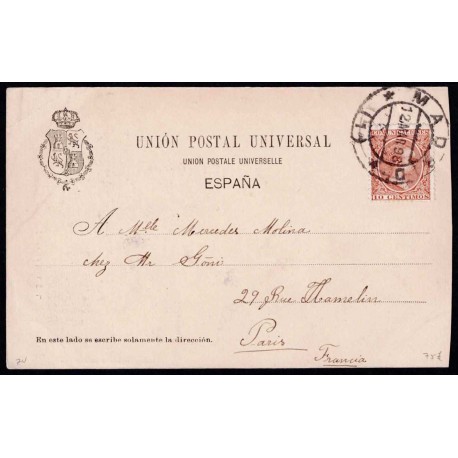 UNIÓN POSTAL UNIVERSAL
UNION POSTALE UNIVERSELLE
ESPAÑA
MADRID
12 MAR 98
COMUNICACIONES
10 CENTIMOS
A Mlle Mercedes Molina
chez Mr Goñi
29 Rue Hamelin
Paris
Francia
En este lado se escribe solamente la dirección.